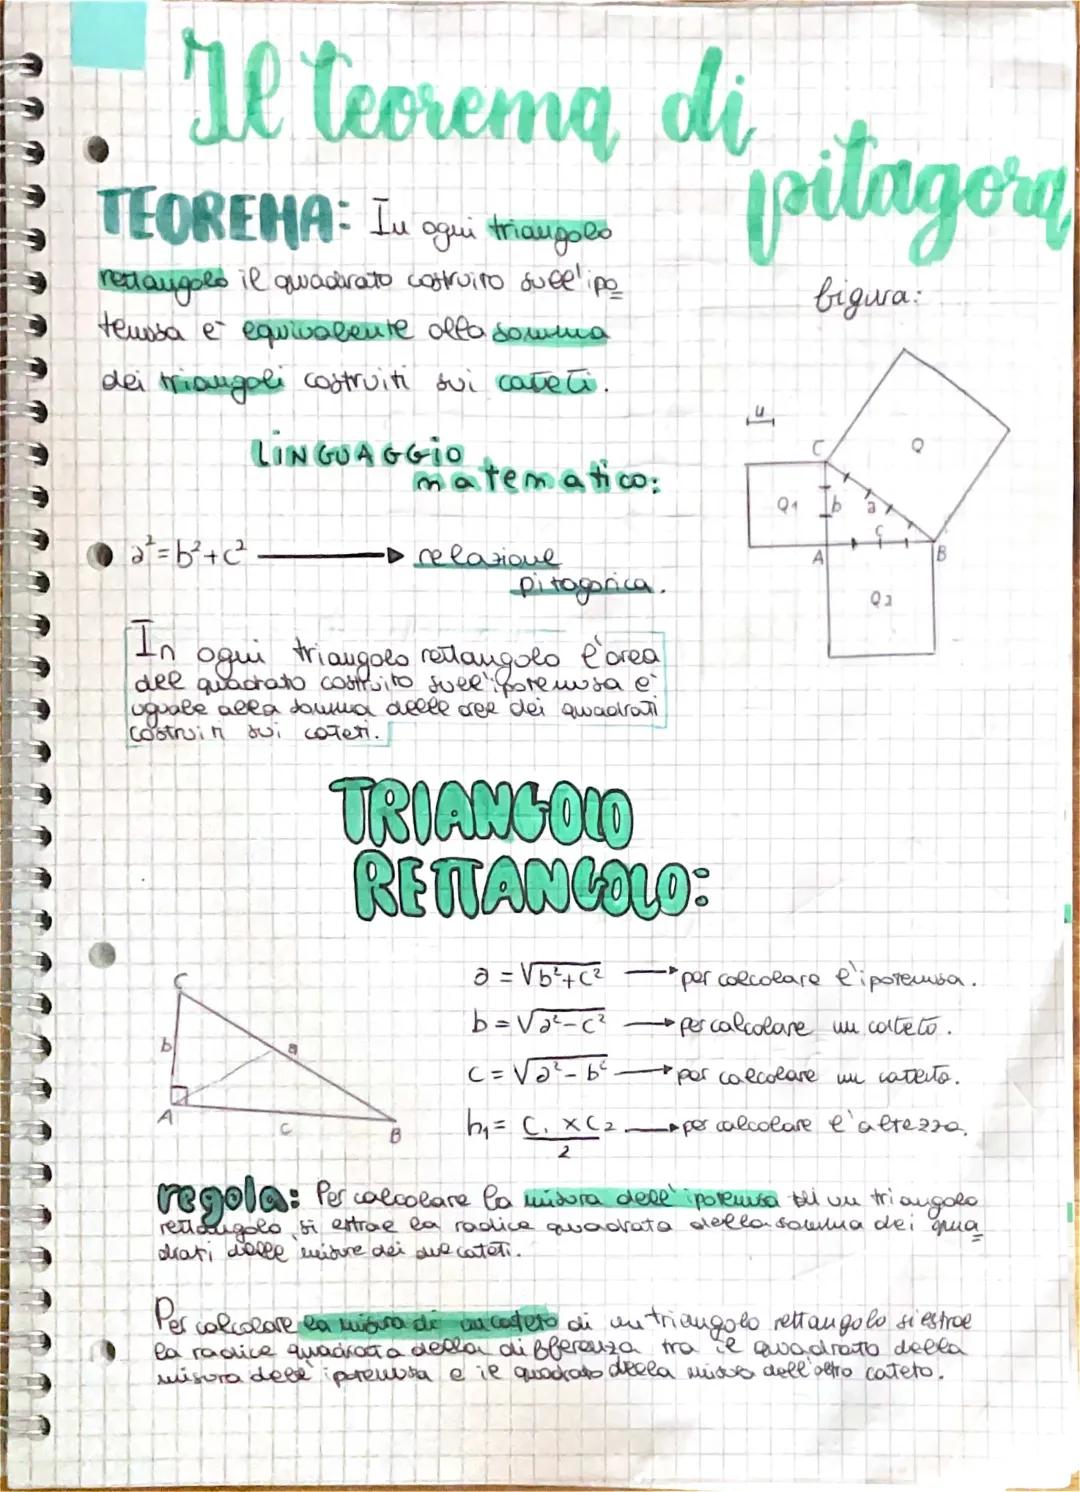 Il teorema di
pitagora
TEOREMA: In ogni triangolo
rettangolo il quadrato costruito sull'ipo
tenusa è equivalente alla somma
dei triangoli costruiti sui cateti.
figura:
u
C
Q
Q1
b
a
c
A
B
Q2
LINGUAGGIO
matematico:
a²=b²+c² → relazione
pitagorica.
In ogni triangolo rettangolo l'area
del quadrato costruito sull'ipotenusa è
uguale alla somma delle aree dei quadrati
costruiti sui cateti.
TRIANGOLO
RETTANGOLO:
C
b
a
A
c
B
a = √b²+c² → per calcolare l'ipotenusa.
b = √a²-c² → per calcolare un cateto.
c = √a²-b² → per calcolare un cateto.
h₁ = C₁ × C₂ → per calcolare l'altezza.
2
regola: Per calcolare la misura dell'ipotenusa di un triangolo
rettangolo si estrae la radice quadrata della somma dei qua
drati delle misure dei due cateti.
Per calcolare la misura di un cateto di un triangolo rettangolo si estrae
la radice quadrata della differenza tra il quadrato della
misura dell'ipotenusa e il quadrato della misura dell'altro cateto.